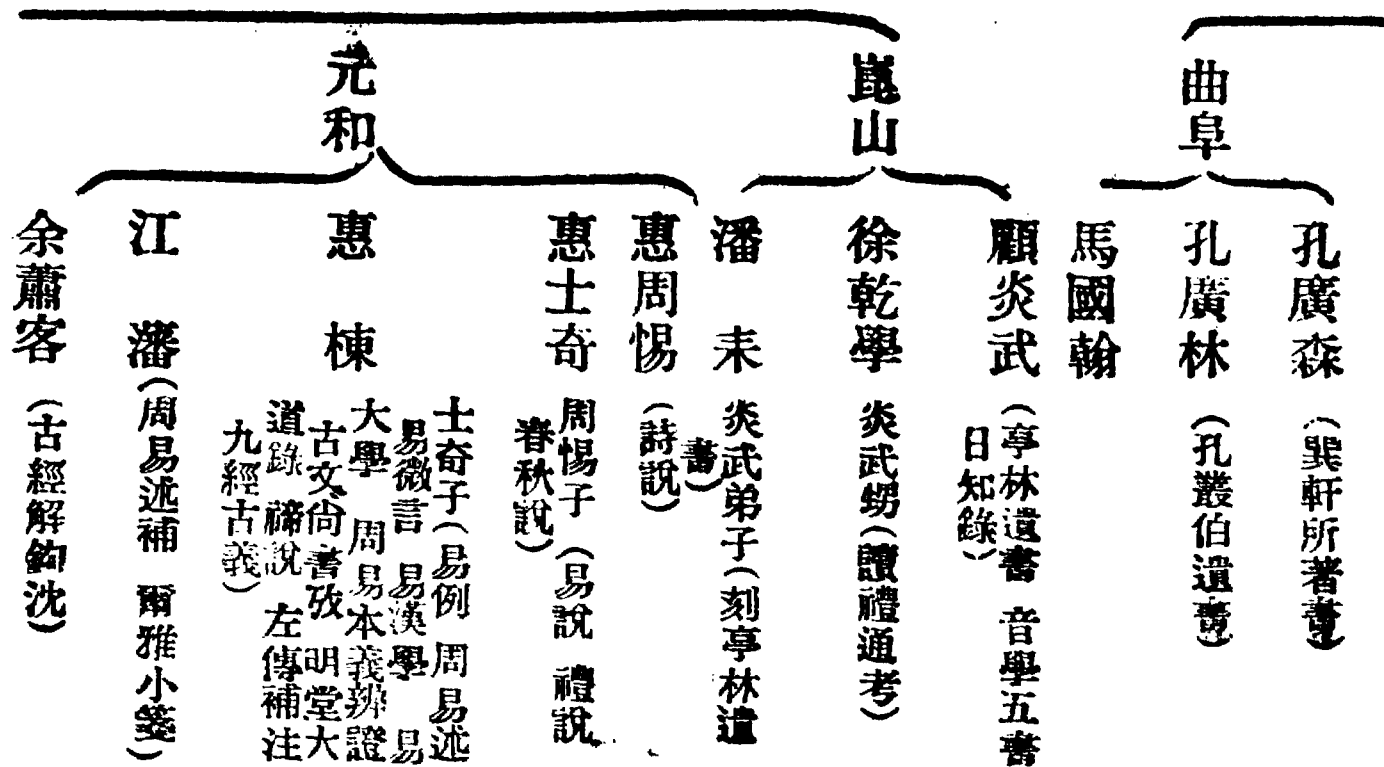 曲阜
孔廣森
(巽軒所著書)
孔廣林
(孔叢伯遺書)
馬國翰
崑山
顧炎武
(亭林遺書 音學五書
日知錄)
徐乾學
炎武甥(讀禮通考)
潘耒
炎武弟子(刻亭林遺
書)
元和
惠周惕
(詩說)
惠士奇
周惕子 (易說 禮說
春秋說)
惠棟
士奇子(易例 周易述
易微言 易漢學 易
大學 周易本義辨證
古文尚書攷 明堂大
道錄 禘說 左傳補注
九經古義)
江藩
(周易述補 爾雅小箋)
余蕭客
(古經解鉤沈)